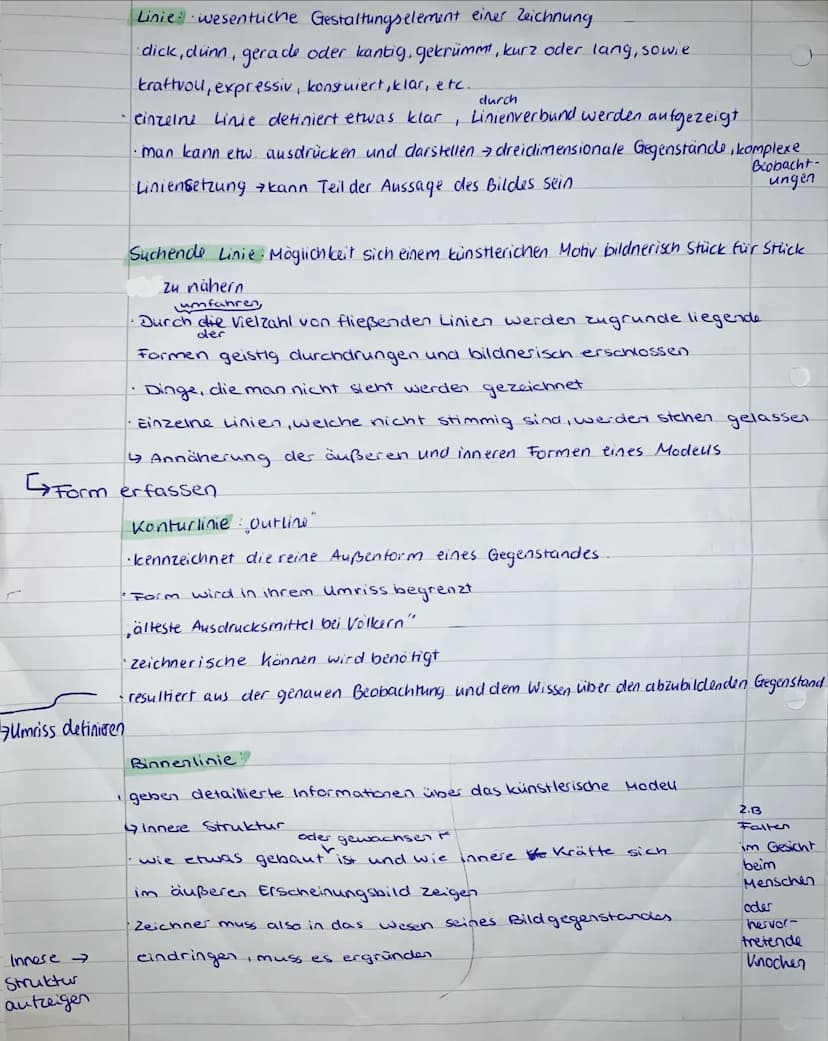 Linie: · wesentliche Gestaltungselement einer Zeichnung
· dick, dünn, gerade oder kantig, gekrümmt, kurz oder lang, sowie
kraftvoll, expressiv, konstruiert, klar, etc.
durch
· einzelne Linie definiert etwas klar, Linienverbund werden aufgezeigt
· man kann etw. ausdrücken und darstellen → dreidimensionale Gegenstände, komplexe
Beobacht-
ungen
Liniensetzung → kann Teil der Aussage des Bildes sein
Suchende Linie: Möglichkeit sich einem künstlerichen Motiv bildnerisch Stück für Stück
zu nähern
umfahren
· Durch die Vielzahl von fließenden Linien werden zugrunde liegende
der
Formen geistig durchdrungen und bildnerisch erschlossen
· Dinge, die man nicht sieht werden gezeichnet
· Einzelne Linien, welche nicht stimmig sind, werden stehen gelassen
↳ Annäherung der äußeren und inneren Formen eines Modells
↳ Form erfassen
Konturlinie: „Outline"
· kennzeichnet die reine Außenform eines Gegenstandes.
· Form wird in ihrem Umriss begrenzt
„älteste Ausdrucksmittel bei Völkern"
· zeichnerische Können wird benötigt
· resultiert aus der genauen Beobachtung und dem Wissen über den abzubildenden Gegenstand
→ Umriss definieren
Binnenlinie:
· geben detaillierte Informationen über das künstlerische Modell
↳ Innere Struktur
oder gewachsen
· wie etwas gebaut ist und wie innere Kräfte sich
im äußeren Erscheinungsbild zeigen
· Zeichner muss also in das Wesen seines Bildgegenstandes
eindringen, muss es ergründen
Innere →
Struktur
aufzeigen
z.B
Falten
im Gesicht
beim
Menschen
oder
hervor-
tretende
Knochen